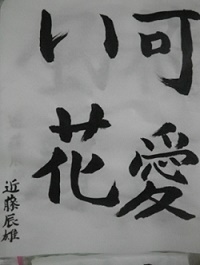 可愛
い花
近藤辰雄